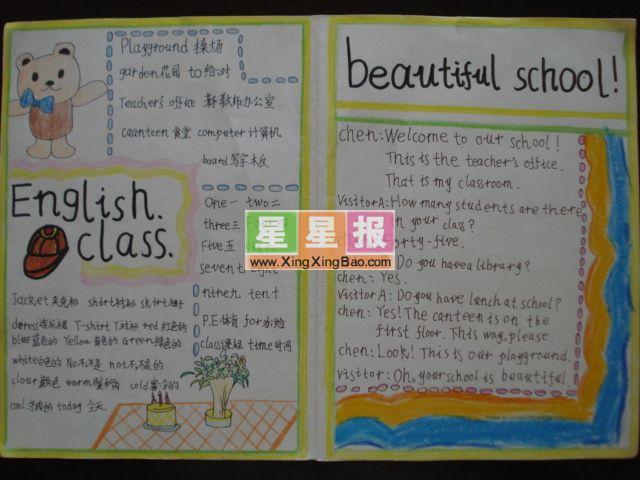 Playground 操场
garden花园 to 给,对
Teacher's office 教师办公室
caanteen 食堂 computer 计算机
board写字木板
English.
class.
One一 two二
three三
Five五
seven
nine九 ten十
P.E.体育 for
class课程 time时间
Jacket夹克衫 shirt衬衫 skirt裙子
dress连衣裙 T-shirt T恤衫 red 红色的
blue蓝色的 Yellow黄色的 Green绿色的
white白色的 No不,不是 not不,不是的
clour颜色 warm暖和的 cold寒冷的
cool凉爽的 today 今天
beautiful school!
chen: Welcome to our school!
This is the teacher's office.
That is my classroom.
Visitor A: How many students are there
in your class?
forty-five.
Do you have a library?
chen: Yes.
Visitor A: Do you have lunch at school?
chen: Yes! The canteen is on the
first floor. This way, please.
chen: Look! This is our playground.
Visitor: Oh, your school is beautiful.
星星报
www.XingXingBao.com